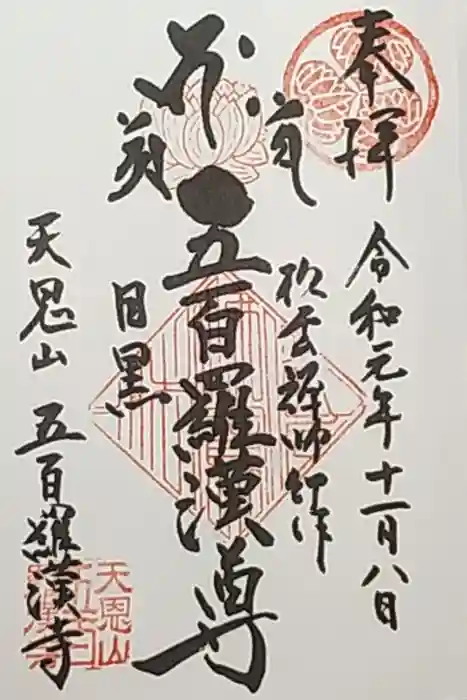 奉拝
令和元年十一月八日
松雲禅師作
五百羅漢尊
目黒
天恩山 五百羅漢寺
天恩山